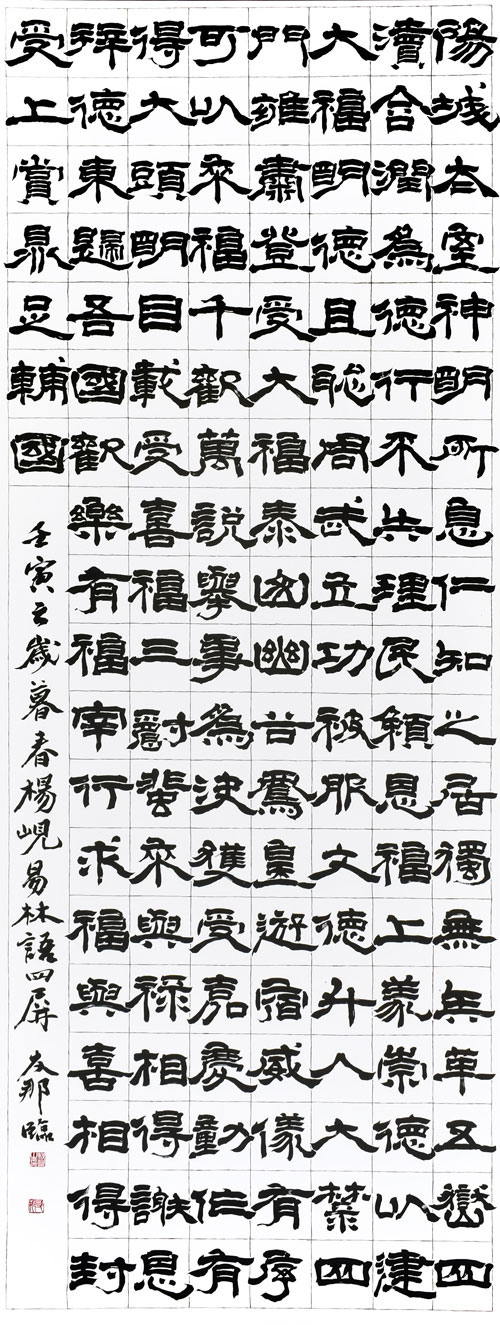 陽城太室神明所息仁知之居獨無兵革五嶽四
瀆合潤為德行不失理民賴恩福上義崇德以建
大福明德且聰周武立功被服文德升入大禁四
門雍肅登受大福泰山幽谷鳳皇遊宿威儀有序
可以來福千歡萬說舉事為決獲受嘉慶動作有
得大頭明目載受喜福三爵蜚來與祿相得謝恩
拜德東歸吾國歡樂有福宰行求福與喜相得封
受上賞鼎足輔國
壬寅之歲暮春楊峴易林語四屏 左那臨